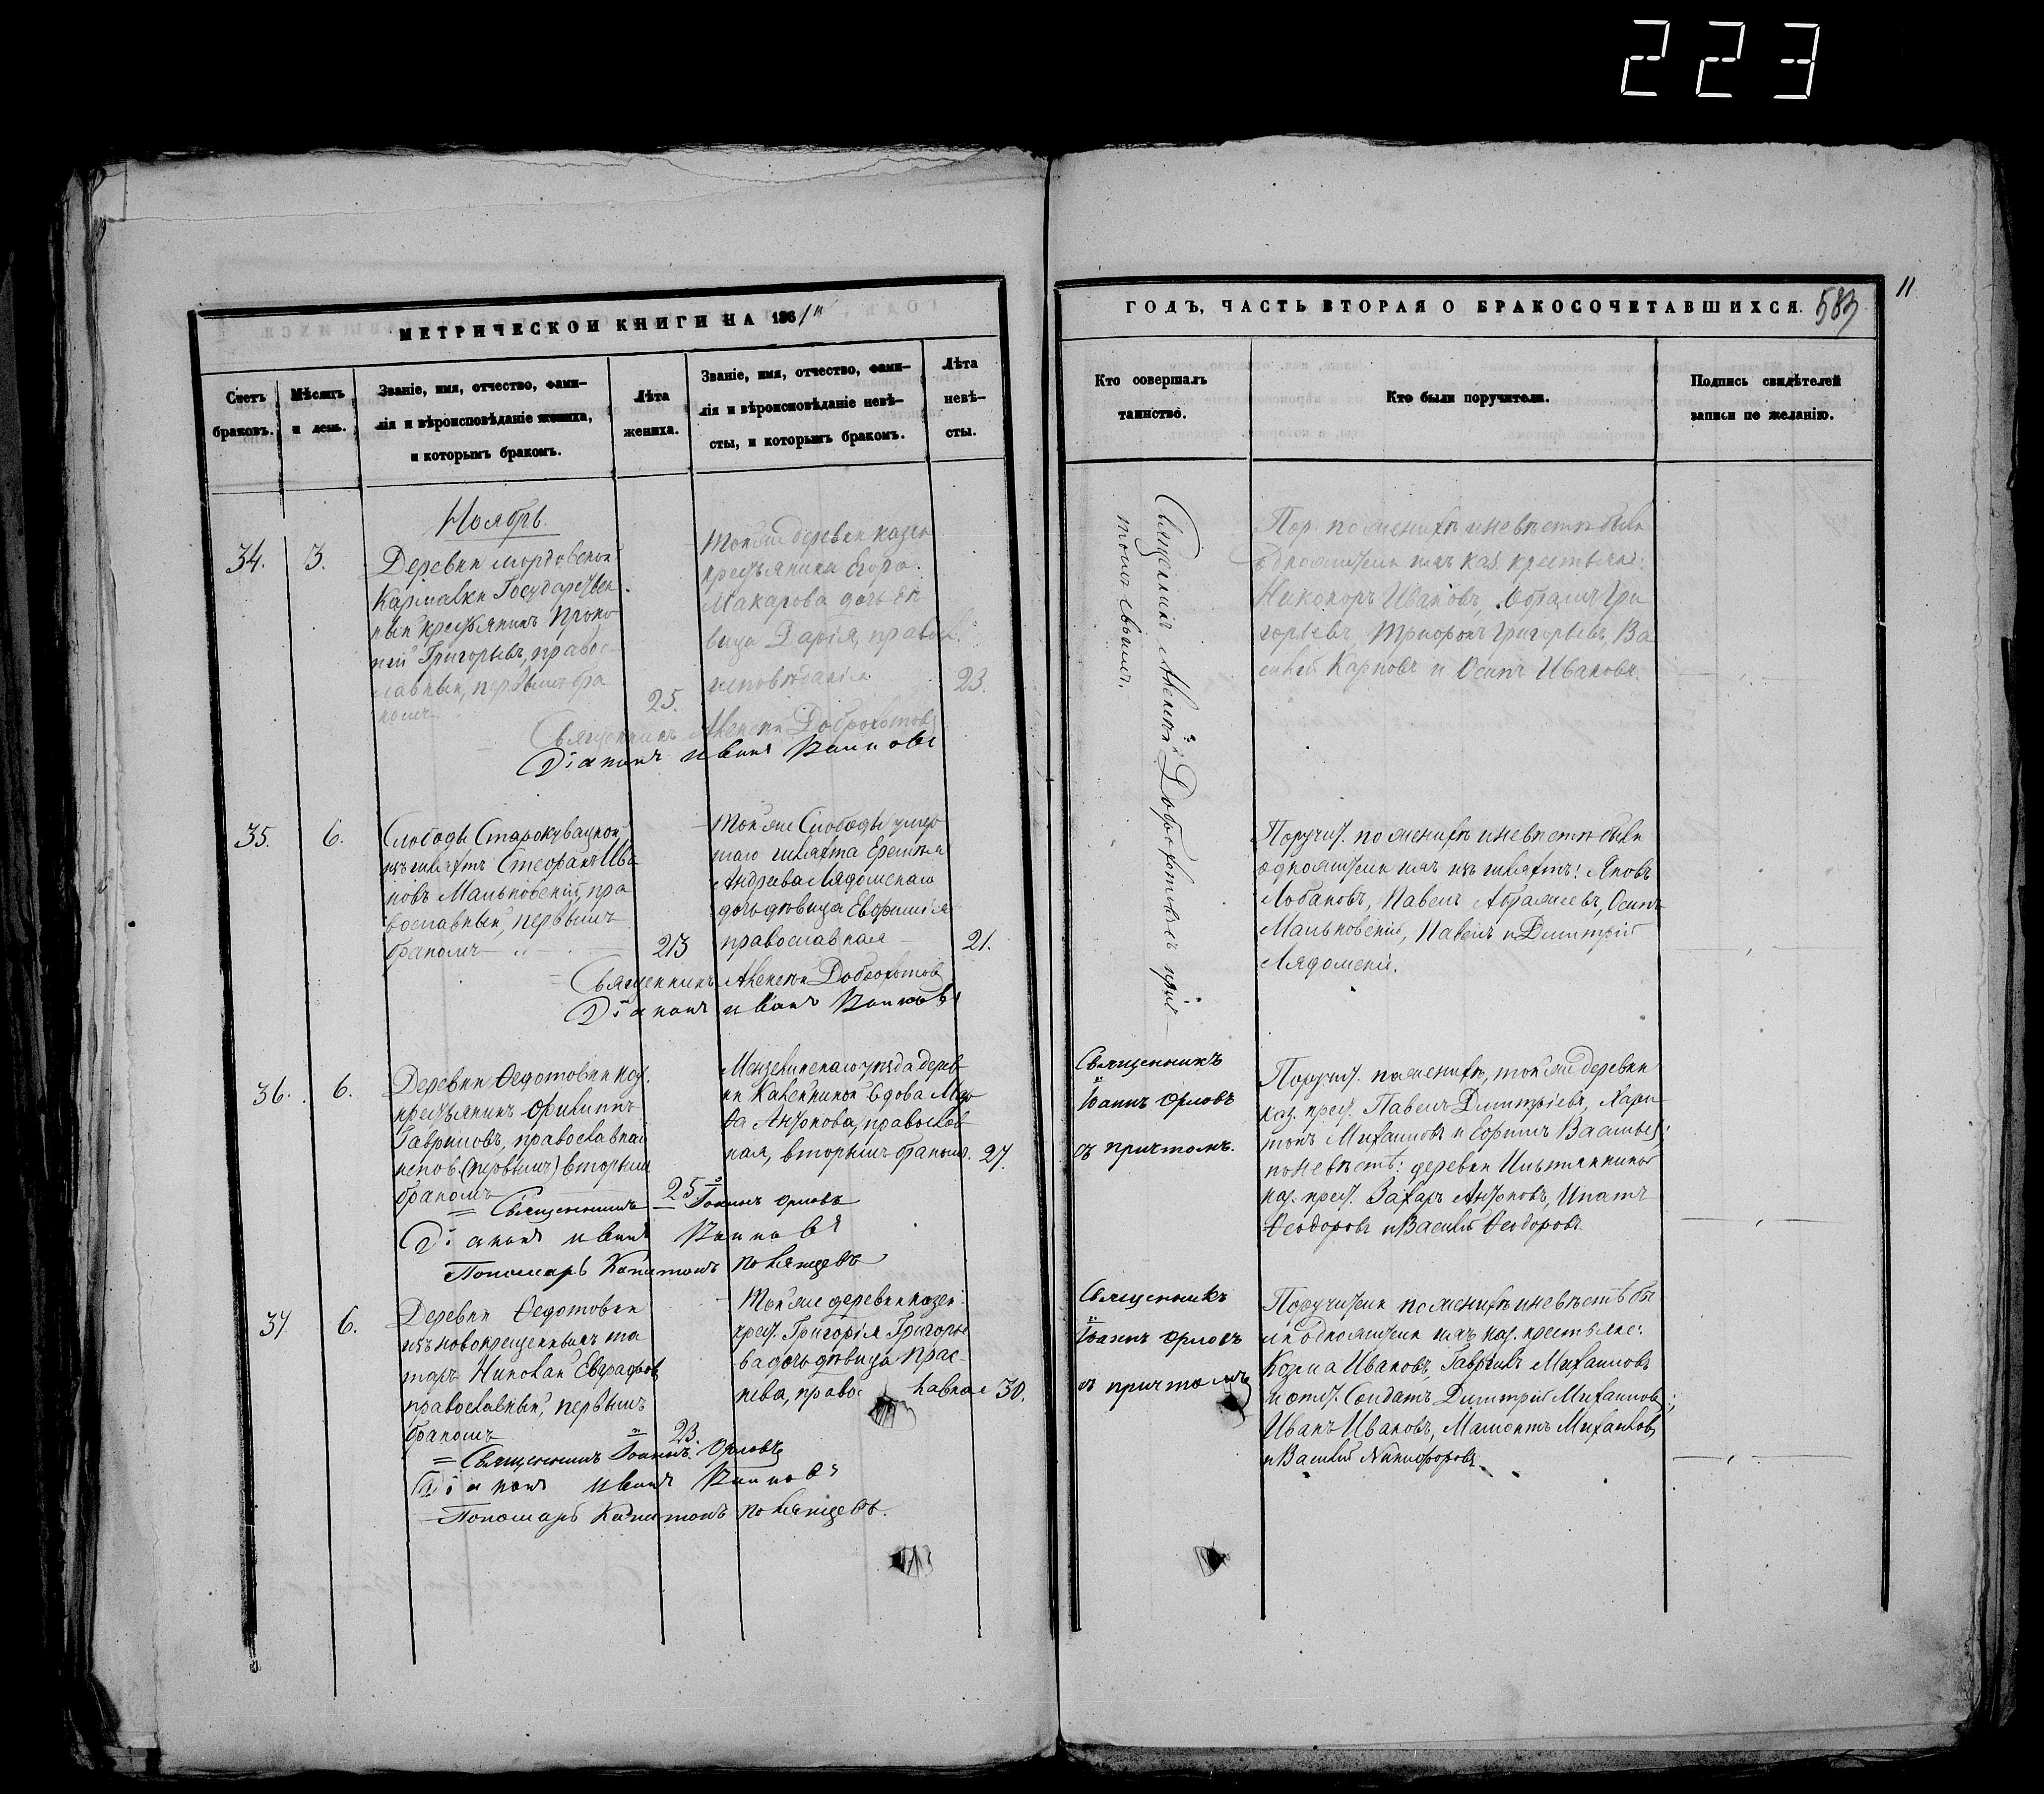 223
МЕТРИЧЕСКОЙ КНИГИ НА 1861й
Счетъ браковъ.
Мѣсяцъ и день.
Званіе, имя, отчество, фами-
лія и вѣроисповѣданіе жениха,
и которымъ бракомъ.
Лѣта жениха.
Званіе, имя, отчество, фами-
лія и вѣроисповѣданіе невѣ-
сты, и которымъ бракомъ.
Лѣта невѣ-
сты.
Ноябрь.
34.
3.
Деревни мордовской
Кармалки Государствен-
ный крестьянинъ Проко-
пій Григорьевъ, правос-
лавный, первымъ бра
комъ
25.
Той же деревни казен
крестьянина Егора
Макарова дочь дѣ
вица Дарія, правос.
исповѣданія
23.
Священникъ Алексѣй Доброхотовъ
Діаконъ Иванъ Поповъ
35.
6.
Слободы Старокувацкой
изъ шляхтъ Стефанъ Ива
новъ Мальковскій, пра
вославный, первымъ
бракомъ
23
Той же Слободы умер
шаго шляхта Еремѣя
Андреева Лядомскаго
дочь дѣвица Евфимія
православная
21.
Священникъ Алексѣй Доброхотовъ
Діаконъ Иванъ Поповъ
36.
6.
Деревни Ѳедотовки каз.
крестьянинъ Филиппъ
Гавриловъ, православнаго
испов. (первымъ) вторымъ
бракомъ
25
Мензелинскаго уѣзда дерев-
ни вдова
Антонова, православ
ная, вторымъ бракомъ.
27.
Священникъ Іоаннъ Орловъ
Діаконъ Иванъ Поповъ
Пономарь Капитонъ
37.
6.
Деревни Ѳедотовки
изъ новокрещенныхъ та
таръ Николай Евграфовъ
православный, первымъ
бракомъ
23.
Той же деревни казен.
крест. Григорія Григорье
ва дочь дѣвица Прас-
кева, православная
30.
Священникъ Іоаннъ Орловъ
Діаконъ Иванъ Поповъ
Пономарь Капитонъ
ГОДЪ, ЧАСТЬ ВТОРАЯ О БРАКОСОЧЕТАВШИХСЯ.
583
11
Кто совершалъ
таинство.
Кто были поручители.
Подпись свидѣтелей
записи по желанію.
Священникъ Алексѣй Доброхотовъ съ прич
томъ своимъ.
Пор. по женихѣ и невѣстѣ были
однажители ихъ каз. крестьяне:
Никоноръ Ивановъ, Абрамъ Гри
горьевъ, Трифонъ Григорьевъ, Ва
силій Карповъ и Осипъ Ивановъ.
Поручит. по женихѣ и невѣстѣ были
одножители ихъ изъ шляхтъ: Яковъ
Лобановъ, Павелъ Абрамсевъ, Осипъ
Мальковскій, Павелъ и Димитрій
Лядомскій.
Священникъ
Іоаннъ Орловъ
съ причтомъ.
Поручит. по женихѣ, той же деревни
каз. крест. Павелъ Димитріевъ, Хари
тонъ Михаиловъ и Ефимъ Васильев:
по невѣстѣ: деревни
каз. крест. Захаръ Антоновъ, Ипатъ
Ѳеодоровъ и Василій Ѳеодоровъ.
Священникъ
Іоаннъ Орловъ
съ причтомъ
Поручители по женихѣ и невѣстѣ бы
ли одножители ихъ каз. крестьяне:
Козма Ивановъ, Гавріилъ Михаиловъ
и отст. Солдатъ Димитрій Михаиловъ;
Иванъ Ивановъ, Мамонтъ Михаиловъ
и Василій Никифоровъ.